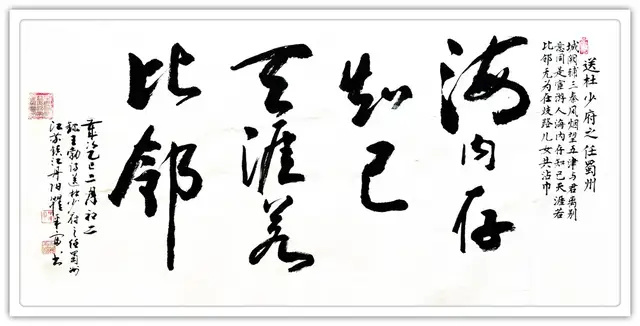 送杜少府之任蜀州
城阙辅三秦风烟望五津与君离别
意同是宦游人海内存知己天涯若
比邻无为在歧路儿女共沾巾
海内存
知己
天涯若
比邻
乙巳二月初二
王勃诗送杜少府之任蜀州
江苏镇江丹阳书